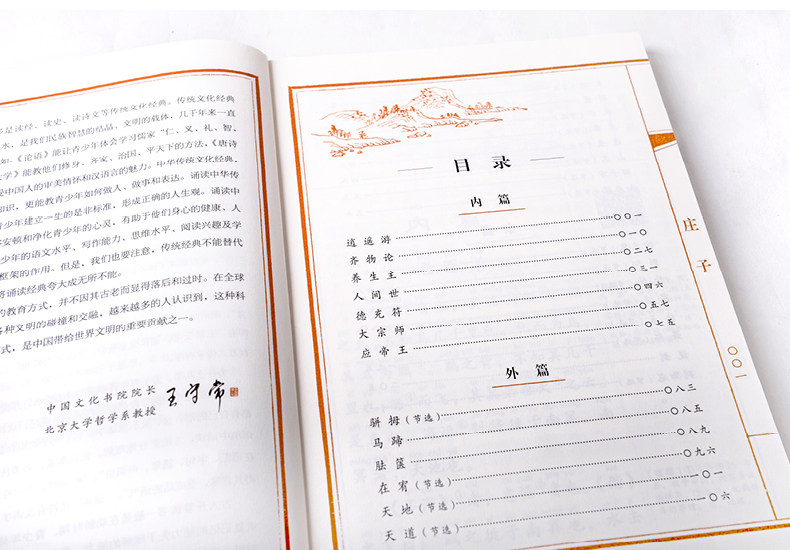 是读经、读史、读诗文等传统文化经典。传统文化经典
水，是我们民族智慧的结晶，文明的载体，几千年来一直
如，《论语》能让青少年体会学习儒家“仁、义、礼、智、
学》能教他们修身、齐家、治国、平天下的方法，《唐诗
中国人的审美情怀和汉语言的魅力。中华传统文化经典，
知识，更能教青少年如何做人、做事和表达。诵读中华传
青少年建立一生的是非标准，形成正确的人生观。诵读中
安顿和净化青少年的心灵，有助于他们身心的健康、人
少年的语文水平、写作能力、思维水平、阅读兴趣及学
框架的作用。但是，我们也要注意，传统经典不能替代
将诵读经典夸大成无所不能。
的教育方式，并不因其古老而显得落后和过时。在全球
各种文明的碰撞和交融，越来越多的人认识到，这种科
式，是中国带给世界文明的重要贡献之一。
中国文化书院院长
北京大学哲学系教授
王守常
目录
内篇
逍遥游……〇〇一
齐物论……〇一〇
养生主……〇二七
人间世……〇三一
德充符……〇四六
大宗师……〇五七
应帝王……〇七五
外篇
骈拇(节选)……〇八三
马蹄……〇八五
胠箧……〇八九
在宥(节选)……〇九六
天地(节选)……一〇一
天道(节选)……一〇六
庄子
〇〇一